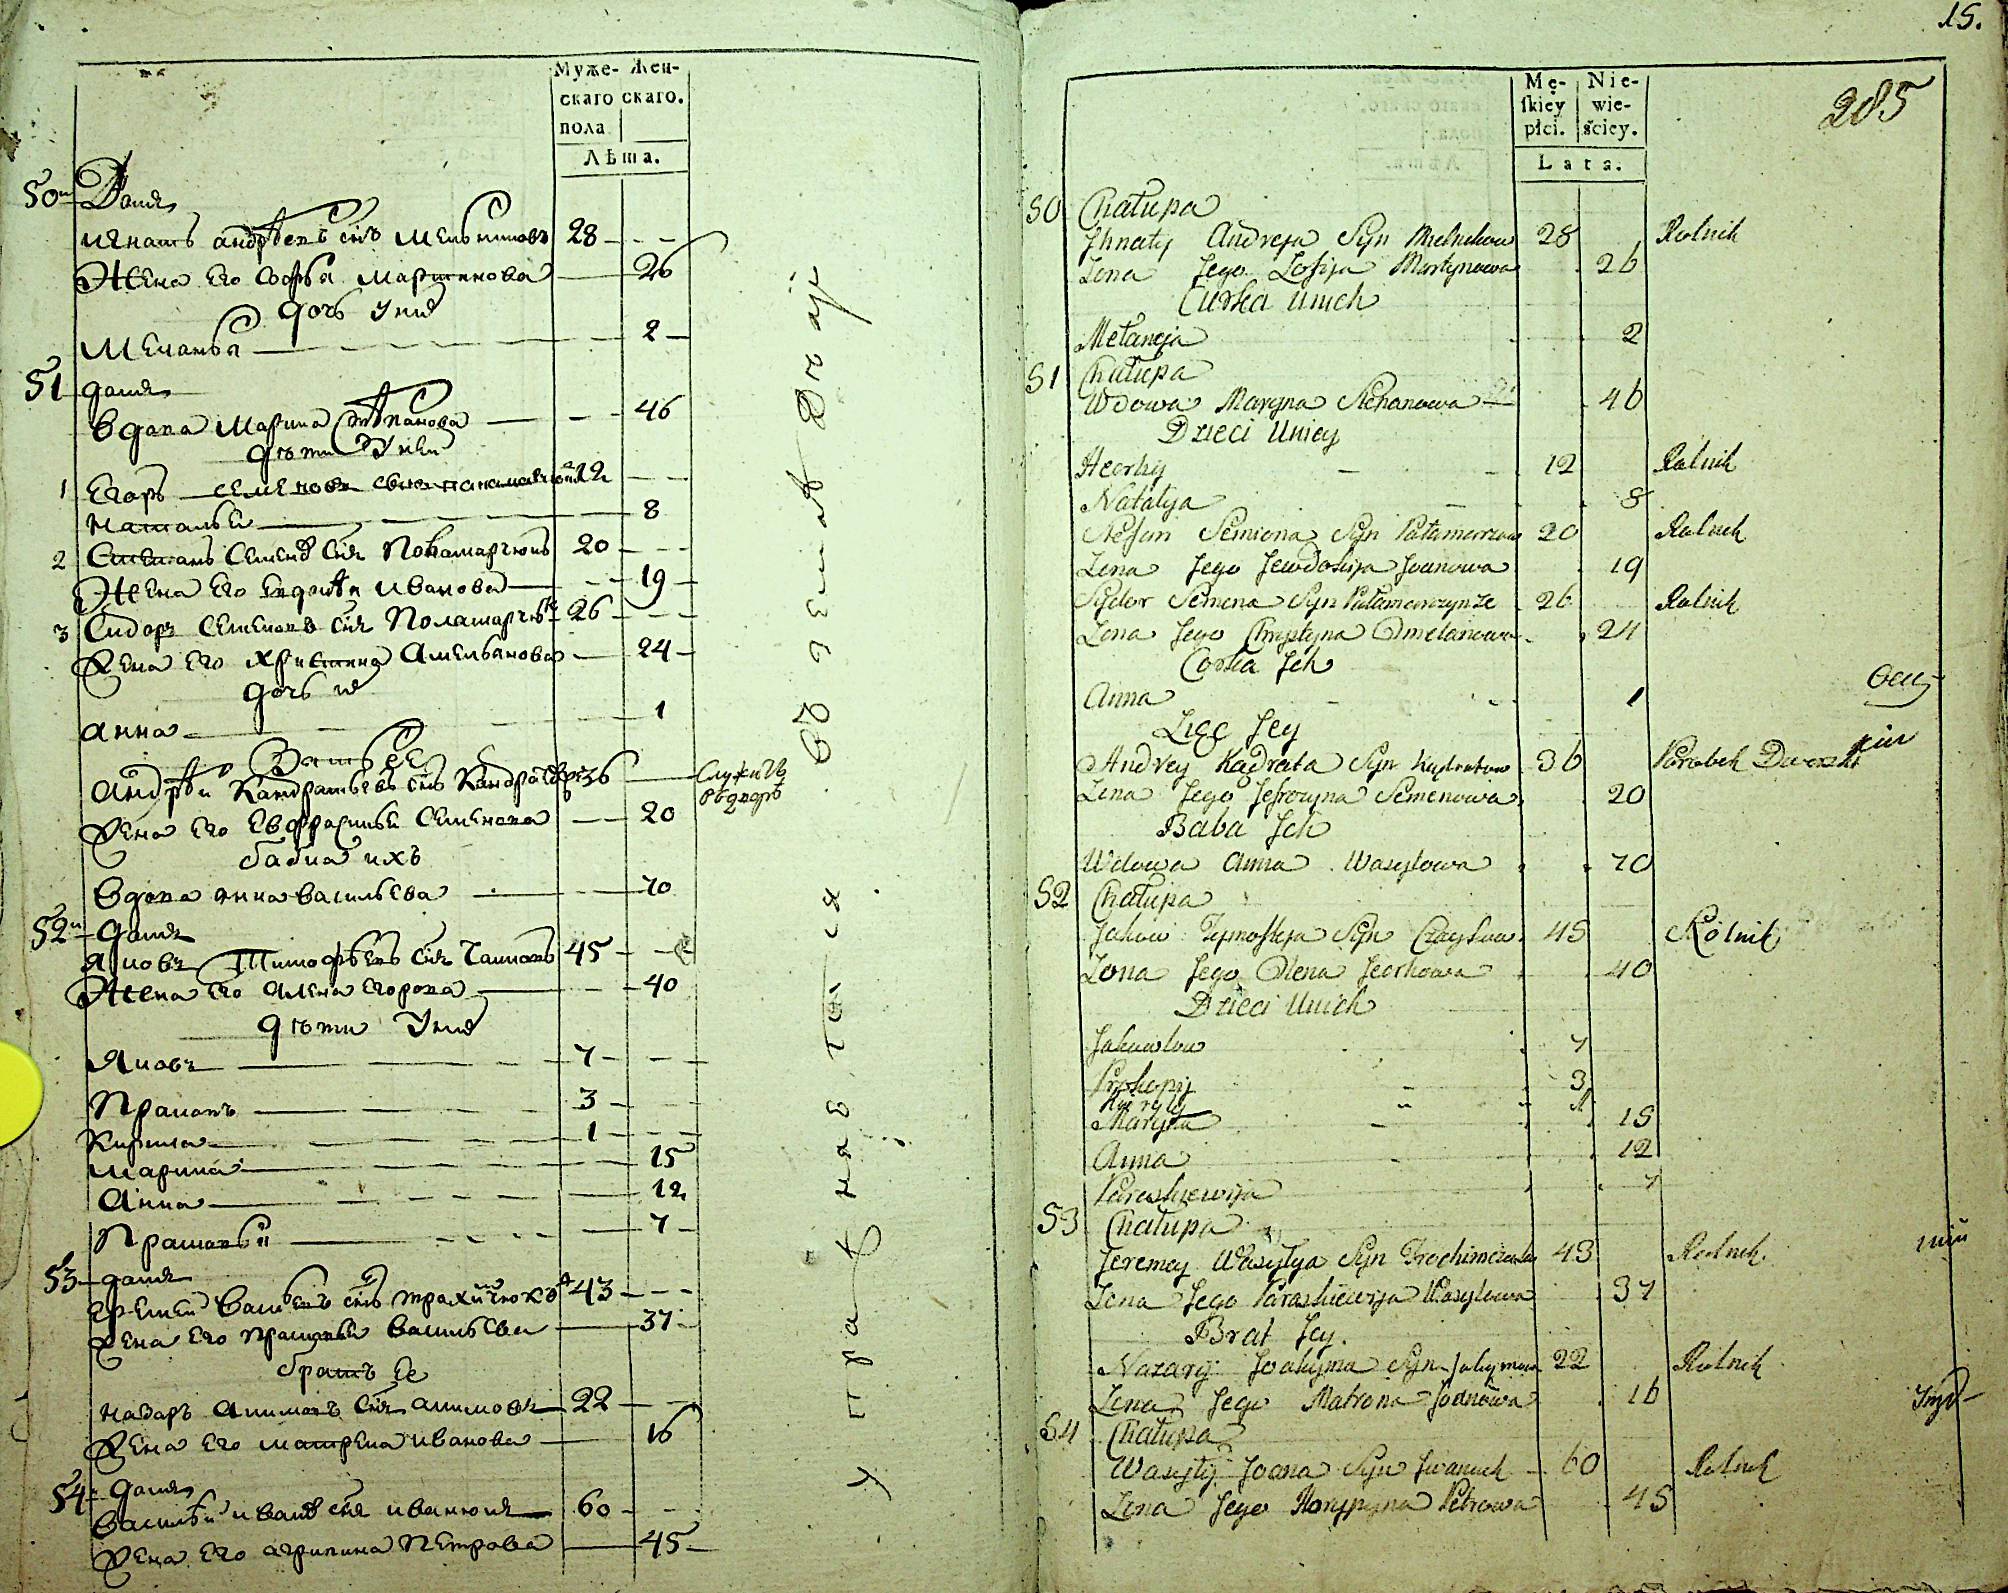 Муже- Жен-
скаго скаго.
пола
Лѣта.
50 Домъ
Игнатъ Андрѣевъ снъ Мельниковъ 28
Жена его Софья Мартинова 26
дочь у них
Меланья 2
51 домъ
вдова Марина Степанова 46
дѣти у неи
1 Егоръ 12
Наталья 8
2 Семенов снъ 20
Жена его Евдокия Иванова 19
3 Сидоръ Семеновъ снъ 26
Жена его Христина Амельянова 24
дочь их
Анна 1
Зять ее
Андрѣй Кондратьевъ снъ 36 служитъ
въ дворѣ
Жена его Евфросинья Семенова 20
бабка ихъ
вдова Анна Васильева 70
52 Домъ
Яковъ Тимофѣевъ снъ 45
Жена его Алена Егорова 40
дѣти у них
Яковъ 7
Прокопъ 3
Кирила 1
Марина 15
Анна 12
Прасковья 7
53 домъ
Еремей Васильевъ снъ 43
Жена его Прасковья Васильева 37
братъ ее
Назаръ Акимовъ снъ Акимовъ 22
Жена его Матрена Иванова 16
54 домъ
Василѣй Ивановъ снъ Иванюкъ 60
Жена его Агрипина Петрова 45
15.
285
Mę- Nie-
skiey wie-
płci. ściey.
Lata.
50 Chałupa
Jhnaty Andreja Syn Mielnikow 28 Rolnik
Żona Jego Zofija Martynowa 26
Curka Unich
Mełanija 2
51 Chałupa
Wdowa Maryna Stepanowa 46
Dzieci Uniey
Heorhy 12 Rolnik
Natalja 8
Semiona Syn 20 Rolnik
Żona Jego Jewdokija Joanowa 19
Sydor Semena Syn 26 Rolnik
Żona Jego Chrystyna Omelanowa 24
Corka Jch
Anna 1
Zięć Jey
Andrey Kądrata Syn Kądratow 36 Parobek Dworski
Żona Jego Jefrozyna Semenowa 20
Baba Jch
Wdowa Anna Wasylowa 70
52 Chałupa
Jakow Tymofieja Syn 45 Rolnik
Żona Jego Olena Jeorhowa 40
Dzieci Unich
Jakowlow 7
Prokopij 3
Kiryły 1
Maryna 15
Anna 12
Paraskiewija 7
53 Chałupa
Jeremey Wasylja Syn 43 Rolnik
Żona Jego Paraskiewija Wasylowa 37
Brat Jey
Nazary Joakyma Syn Jakymow 22 Rolnik
Żona Jego Matrona Joanowa 16
54 Chałupa
Wasyly Joana Syn Jwaniuk 60 Rolnik
Żona Jego Horypyna Petrowa 45